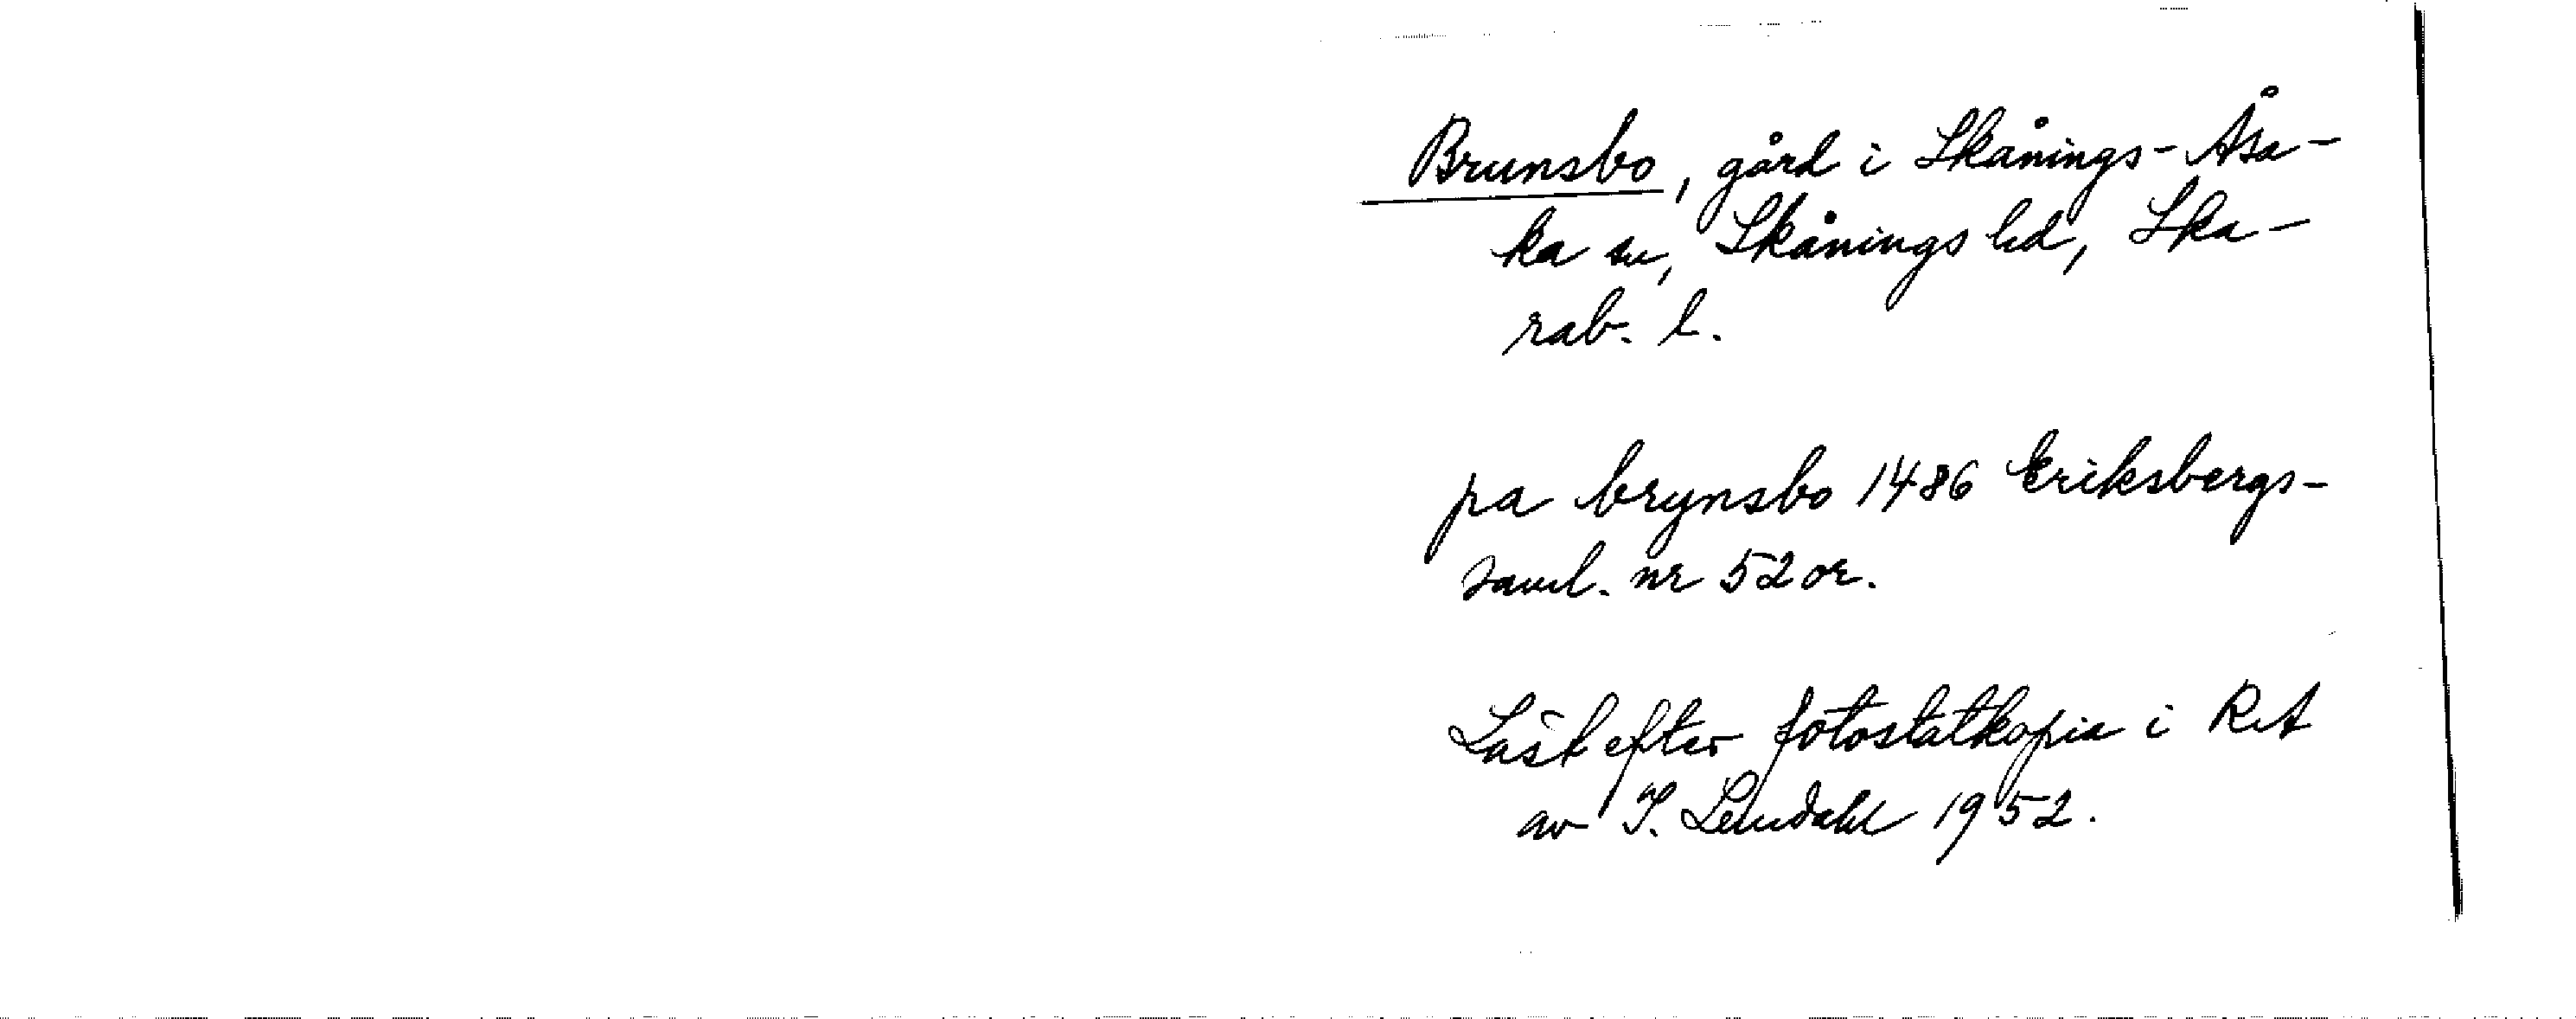 Brunsbo, gård i Skånings-Åsa-
ka sn, Skånings hd, Ska-
rab. l.
pa brynsbo 1486 Eriksbergs-
saml. nr 52 or.
Läst efter fotostatkopia i RA
av I. Lindahl 1952.